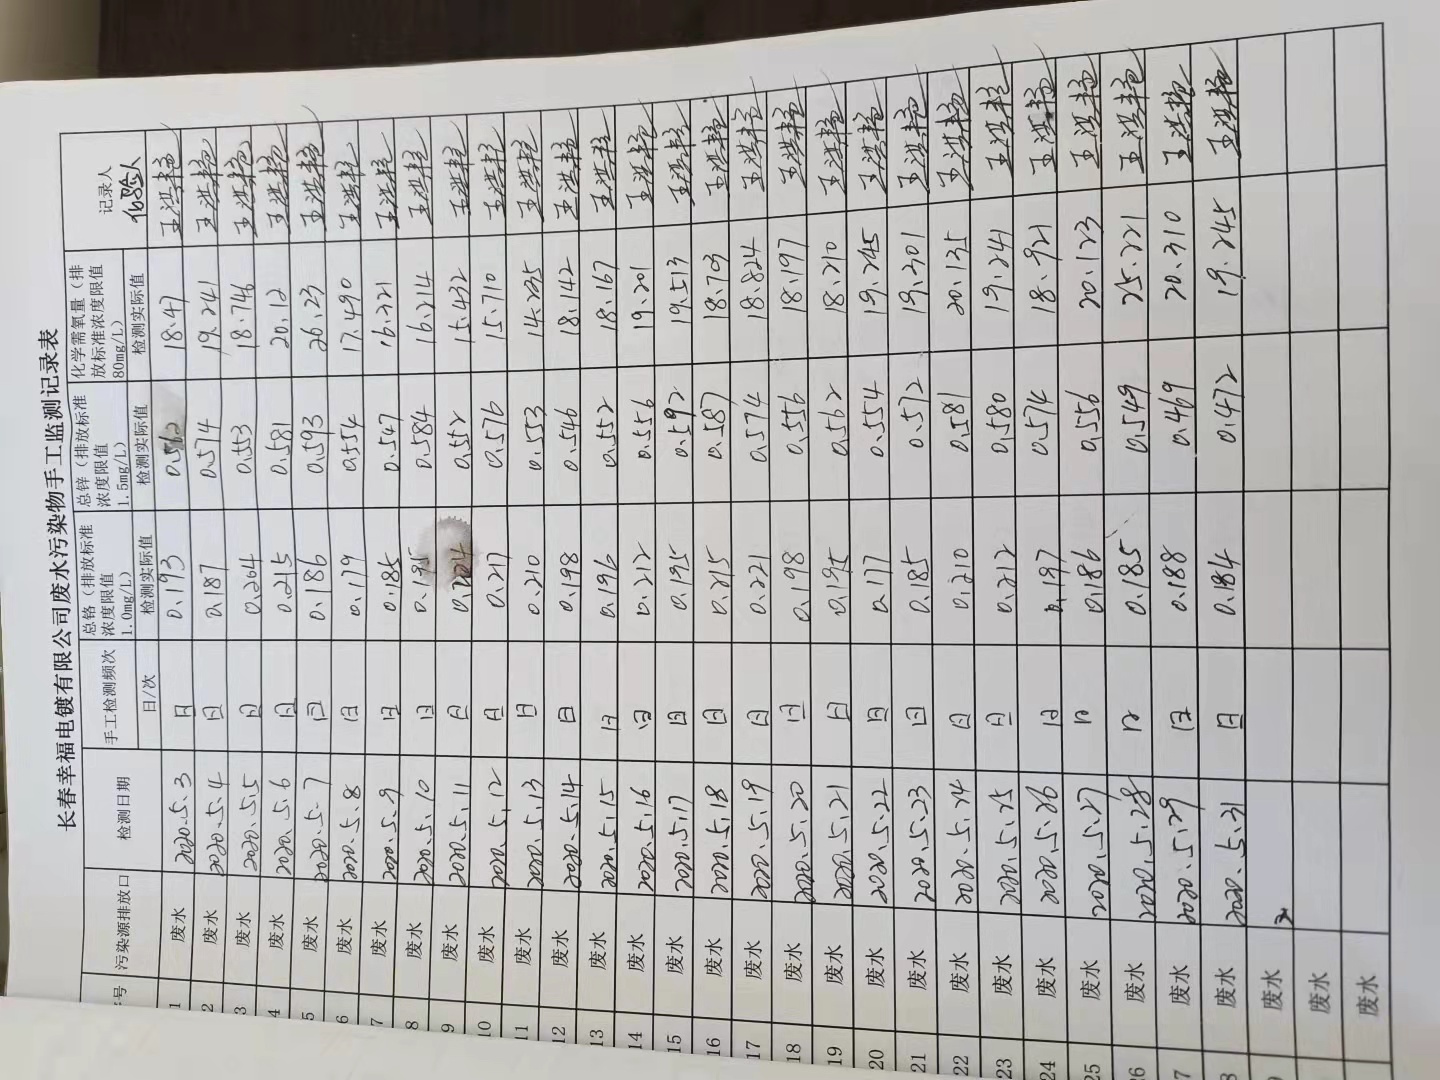 长春幸福电镀有限公司废水污染物手工监测记录表
号 污染源排放口 检测日期 手工检测频次 日/次 总铬（排放标准浓度限值1.0mg/L） 检测实际值 总锌（排放标准浓度限值1.5mg/L） 检测实际值 化学需氧量（排放标准浓度限值80mg/L） 检测实际值 记录人 化验人
1 废水 2020.5.3 日 0.193 0.562 18.47 王洪艳
2 废水 2020.5.4 日 0.187 0.574 19.241 王洪艳
3 废水 2020.5.5 日 0.204 0.553 18.746 王洪艳
4 废水 2020.5.6 日 0.215 0.581 20.12 王洪艳
5 废水 2020.5.7 日 0.186 0.593 26.23 王洪艳
6 废水 2020.5.8 日 0.179 0.554 17.490 王洪艳
7 废水 2020.5.9 日 0.185 0.547 16.221 王洪艳
8 废水 2020.5.10 日 0.195 0.584 16.214 王洪艳
9 废水 2020.5.11 日 0.204 0.552 15.432 王洪艳
10 废水 2020.5.12 日 0.217 0.576 15.710 王洪艳
11 废水 2020.5.13 日 0.210 0.553 14.235 王洪艳
12 废水 2020.5.14 日 0.198 0.546 18.142 王洪艳
13 废水 2020.5.15 日 0.196 0.552 18.167 王洪艳
14 废水 2020.5.16 日 0.212 0.556 19.201 王洪艳
15 废水 2020.5.17 日 0.195 0.592 19.513 王洪艳
16 废水 2020.5.18 日 0.215 0.587 18.703 王洪艳
17 废水 2020.5.19 日 0.221 0.574 18.824 王洪艳
18 废水 2020.5.20 日 0.198 0.556 18.197 王洪艳
19 废水 2020.5.21 日 0.195 0.562 18.210 王洪艳
20 废水 2020.5.22 日 0.177 0.554 19.245 王洪艳
21 废水 2020.5.23 日 0.185 0.572 19.301 王洪艳
22 废水 2020.5.24 日 0.210 0.581 20.135 王洪艳
23 废水 2020.5.25 日 0.212 0.580 19.241 王洪艳
24 废水 2020.5.26 日 0.197 0.574 18.921 王洪艳
25 废水 2020.5.27 日 0.186 0.556 20.123 王洪艳
26 废水 2020.5.28 日 0.185 0.549 25.221 王洪艳
7 废水 2020.5.29 日 0.188 0.469 20.310 王洪艳
8 废水 2020.5.31 日 0.184 0.472 19.245 王洪艳
废水
废水
废水